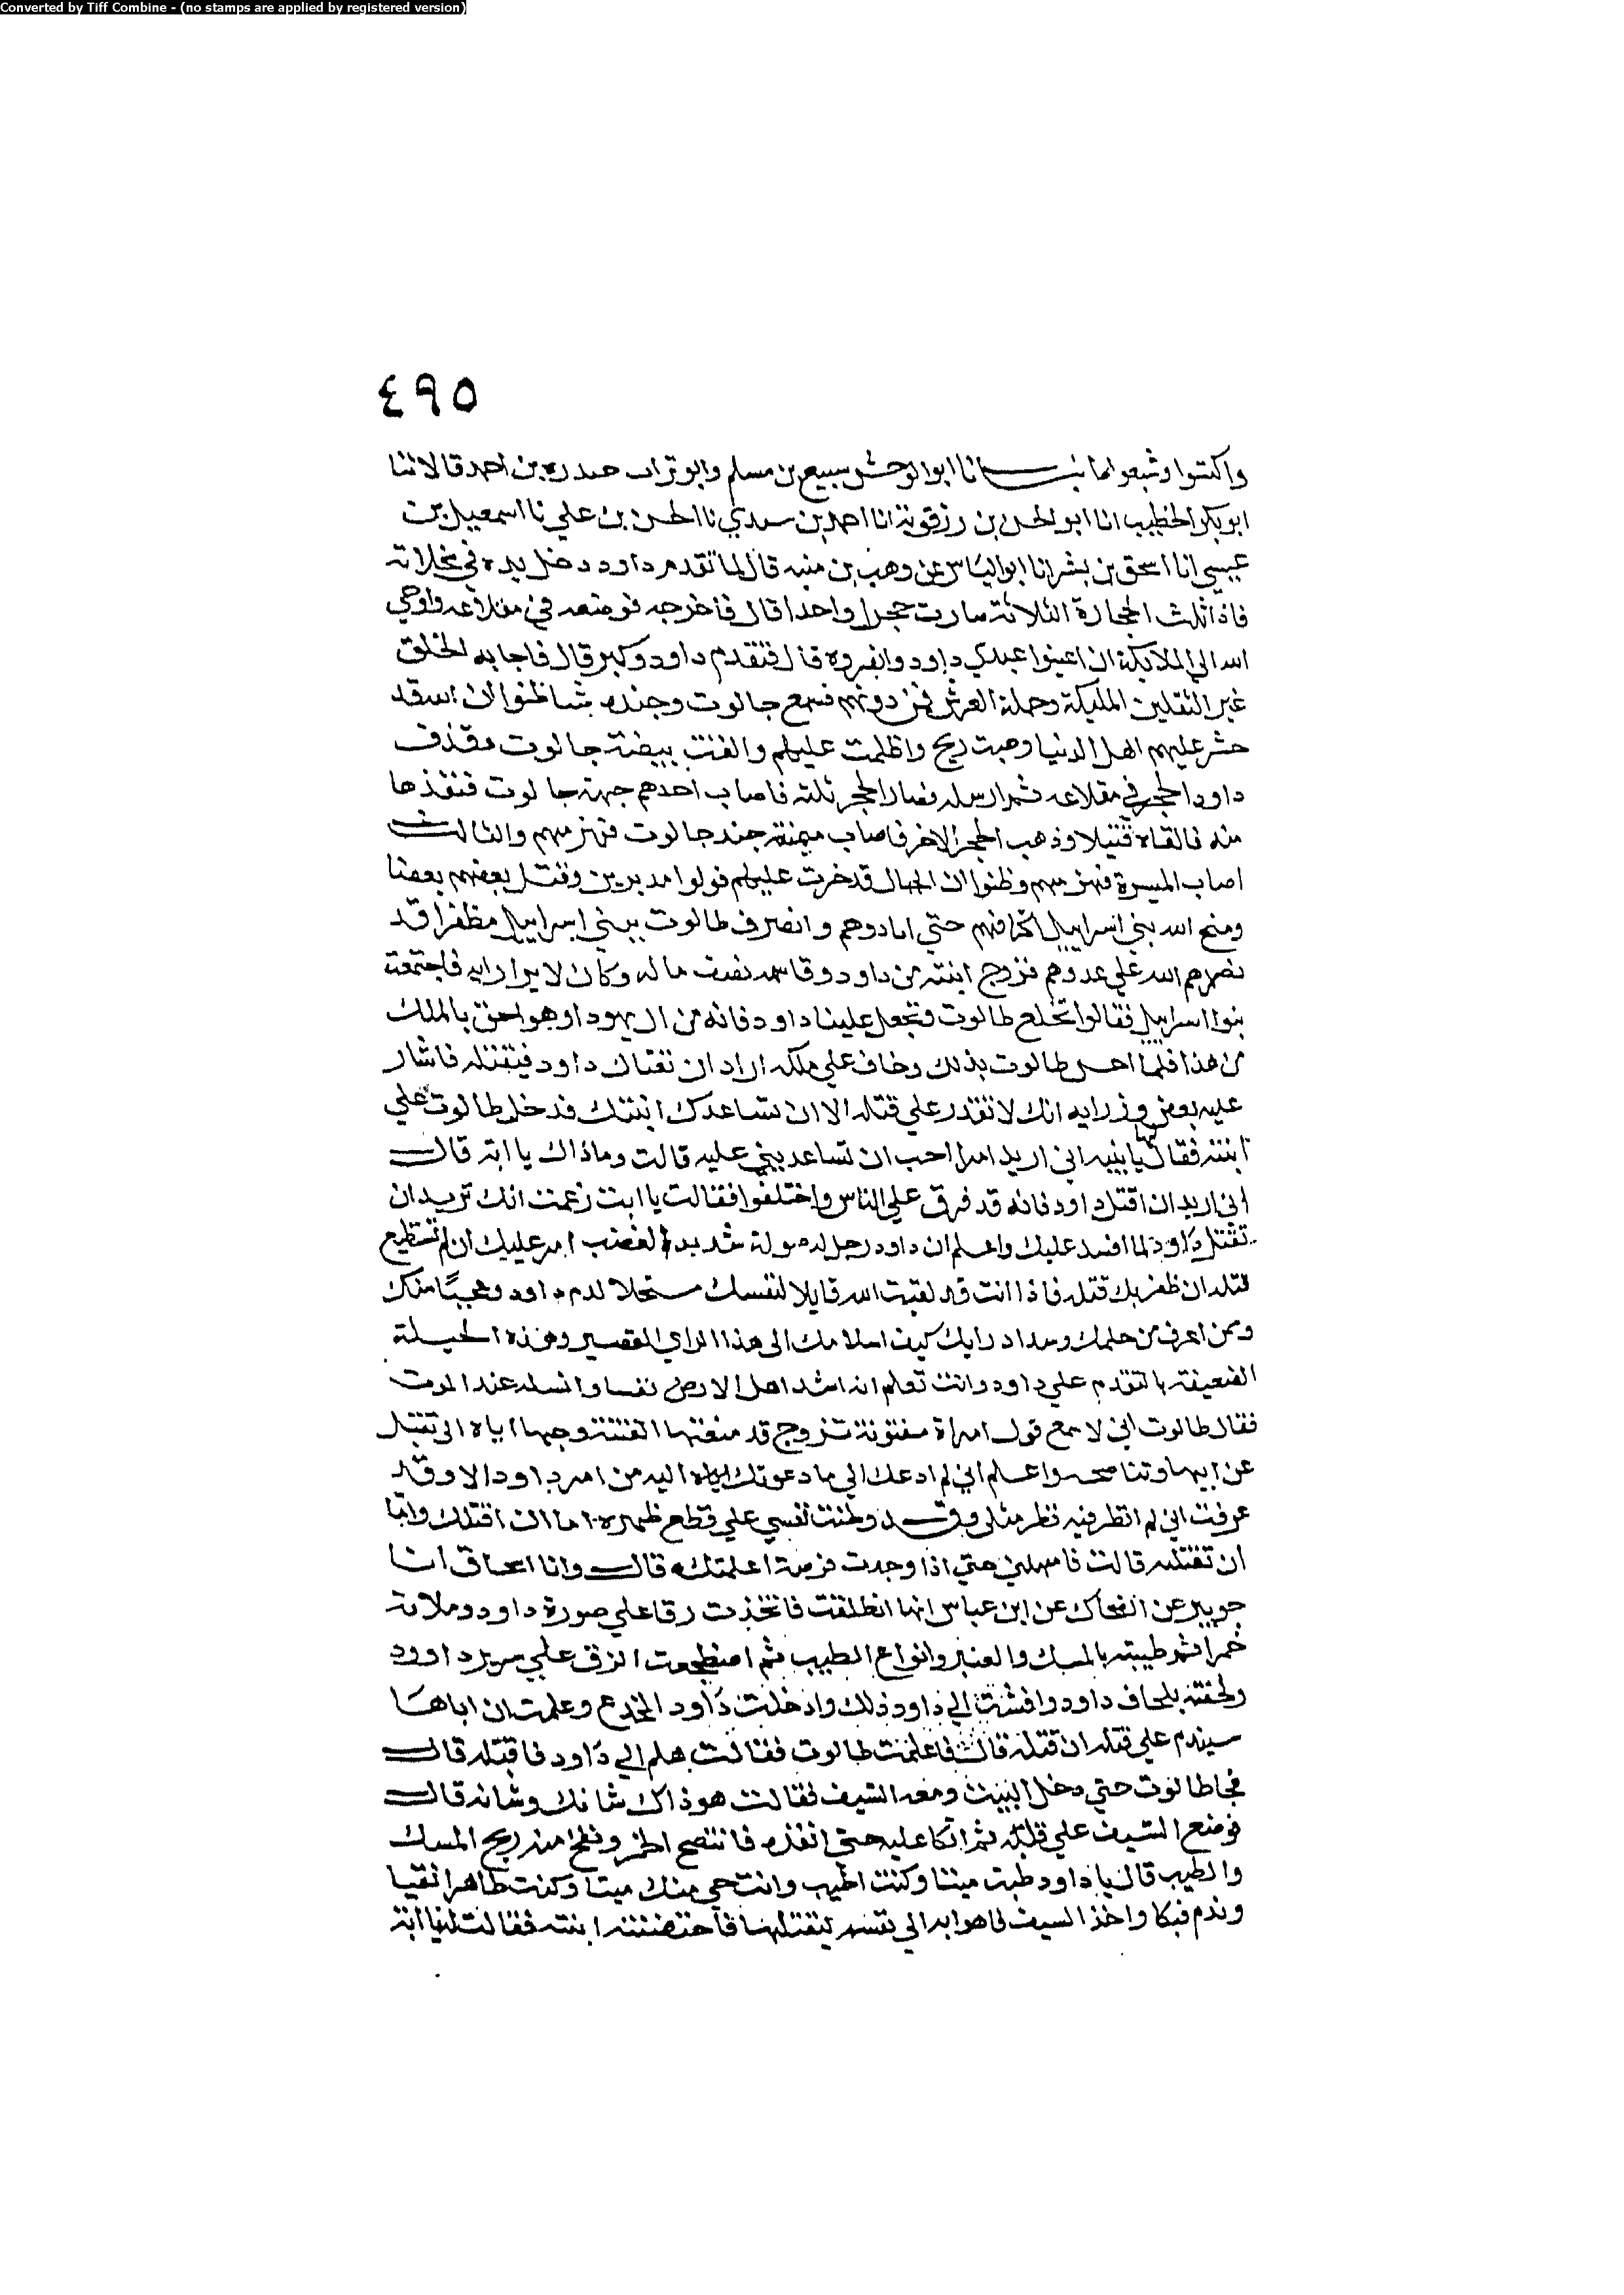 Converted by Tiff Combine - (no stamps are applied by registered version)
٤٩٥
واكتسوا وشبعوا انا ابو الوحش سبيع بن مسلم وابو تراب حيدره بن احمد قالا ثنا
ابو بكر الخطيب انا ابو الحسن بن رزقوية انا احمد بن سندي نا الحسن بن علي نا اسمعيل بن
عيسى انا اسحق بن بشر انا ابو الياس عن وهب بن منبه قال لما تقدم داود دخل يده في مخلاته
فاذا تلك الحجارة الثلاثة صارت حجرا واحدا قال فاخرجه فوضعه في مقلاعه واوحي
الله الى الملايكة ان اعينوا عبدي داود وانصروه قال فتقدم داود وكبر قال فاجابه الخلق
غير الثقلين المليكة وحملة العرش فمن دونهم فسمع جالوت وجنده شيا ظنوا ان الله قد
حشر عليهم اهل الدنيا وهبت ريح واظلمت عليهم والقت بيضة جالوت وقذف
داود الحجر في مقلاعه ثم ارسله فصار الحجر ثلثه فاصاب احدهم جبهة جالوت فنفذها
منه فالقاه قتيلا وذهب الحجر الاخر فاصاب ميمنة جند جالوت فهزمهم والثالث
اصاب الميسرة فهزمهم وظنوا ان الجبال قد خرت عليهم فولوا مدبرين وقتل بعضهم بعضا
ومنح الله بني اسراييل اكتافهم حتي ابادوهم وانصرف طالوت ببني اسراييل مظفرا قد
نصرهم الله علي عدوهم فزوج ابنته من داود وقاسمه نصف ماله وكان لا يرا رايه فاجتمعت
بنوا اسراييل فقالوا نخلع طالوت ونجعل علينا داود فانه من ال يهودا وهو احق بالملك
من هذا فلما احس طالوت بذلك وخاف علي ملكه اراد ان يغتال داود فيقتله فاشار
عليه بعض وزرايه انك لا تقدر علي قتله الا ان تساعدك ابنتك فدخل طالوت علي
ابنته فقال لها يا بنيه اني اريد امرا احب ان تساعديني عليه قالت وما ذاك يا ابه قال
اني اريد ان اقتل داود فانه قد فرق علي الناس واختلفوا فقالت يا ابت زعمت انك تريد ان
تقتل داود لما افسد عليك واعلم ان داود رجل له صولة شديد الغضب امر عليك ان لم تستطيع
قتله ان ظفر بك قتلك فاذا انت قد لقيت الله قايلا لنفسك مستحلا لدم داود وعجبًا منك
وممن اعرف من حلمك وسداد رايك كيف اسلامك الى هذا الراي القصير وهذه الحيلة
الضعيفة بالتقدم علي داود وانت تعلم انه اشد اهل الارض نفسا وابسله عند الموت
فقال طالوت اني لا اسمع قول امراة مفتونة بزوج قد منعتها الفتنة وحبها اياه ان تقبل
عن ابيها وتناصحه واعلم اني لم ادعك الي ما دعوتك اليه من امر داود الا وقد
عرفت اني لم انظر فيه نظر مثلي وقد وطنت نفسي علي قطع ظهره اما ان اقتلك واما
ان تقتليه قالت فامهلني حتي اذا وجدت فرصة اعلمتك قال وانا اسحاق انا
جويبر عن الضحاك عن ابن عباس انها انطلقت فاتخذت زقا علي صورة داود وملاته
خمرا ثم طيبته بالمسك والعنبر وانواع الطيب ثم اضطجعت الزق علي سرير داوود
ولحفته بلحاف داود وافشت الي داود ذلك وادخلت داود المخدع وعلمت ان اباها
سيندم علي قتله ان قتله قال فاعلمت طالوت فقالت هلم الي داود فاقتله قال
فجا طالوت حتي دخل البيت ومعه السيف فقالت هو ذاك شانك وشانه قال
فوضع السيف علي قلبه ثم اتكا عليه حتى انفذه فانتضح الخمر ونفخ منه ريح المسك
والطيب قال يا داود طبت ميتا وكنت اطيب وانت حي منك ميتا وكنت طاهرا نقيا
وندم فبكا واخذ السيف فاهوا به الي نفسه ليقتلها فاحتضنته ابنته فقالت له يا ابه